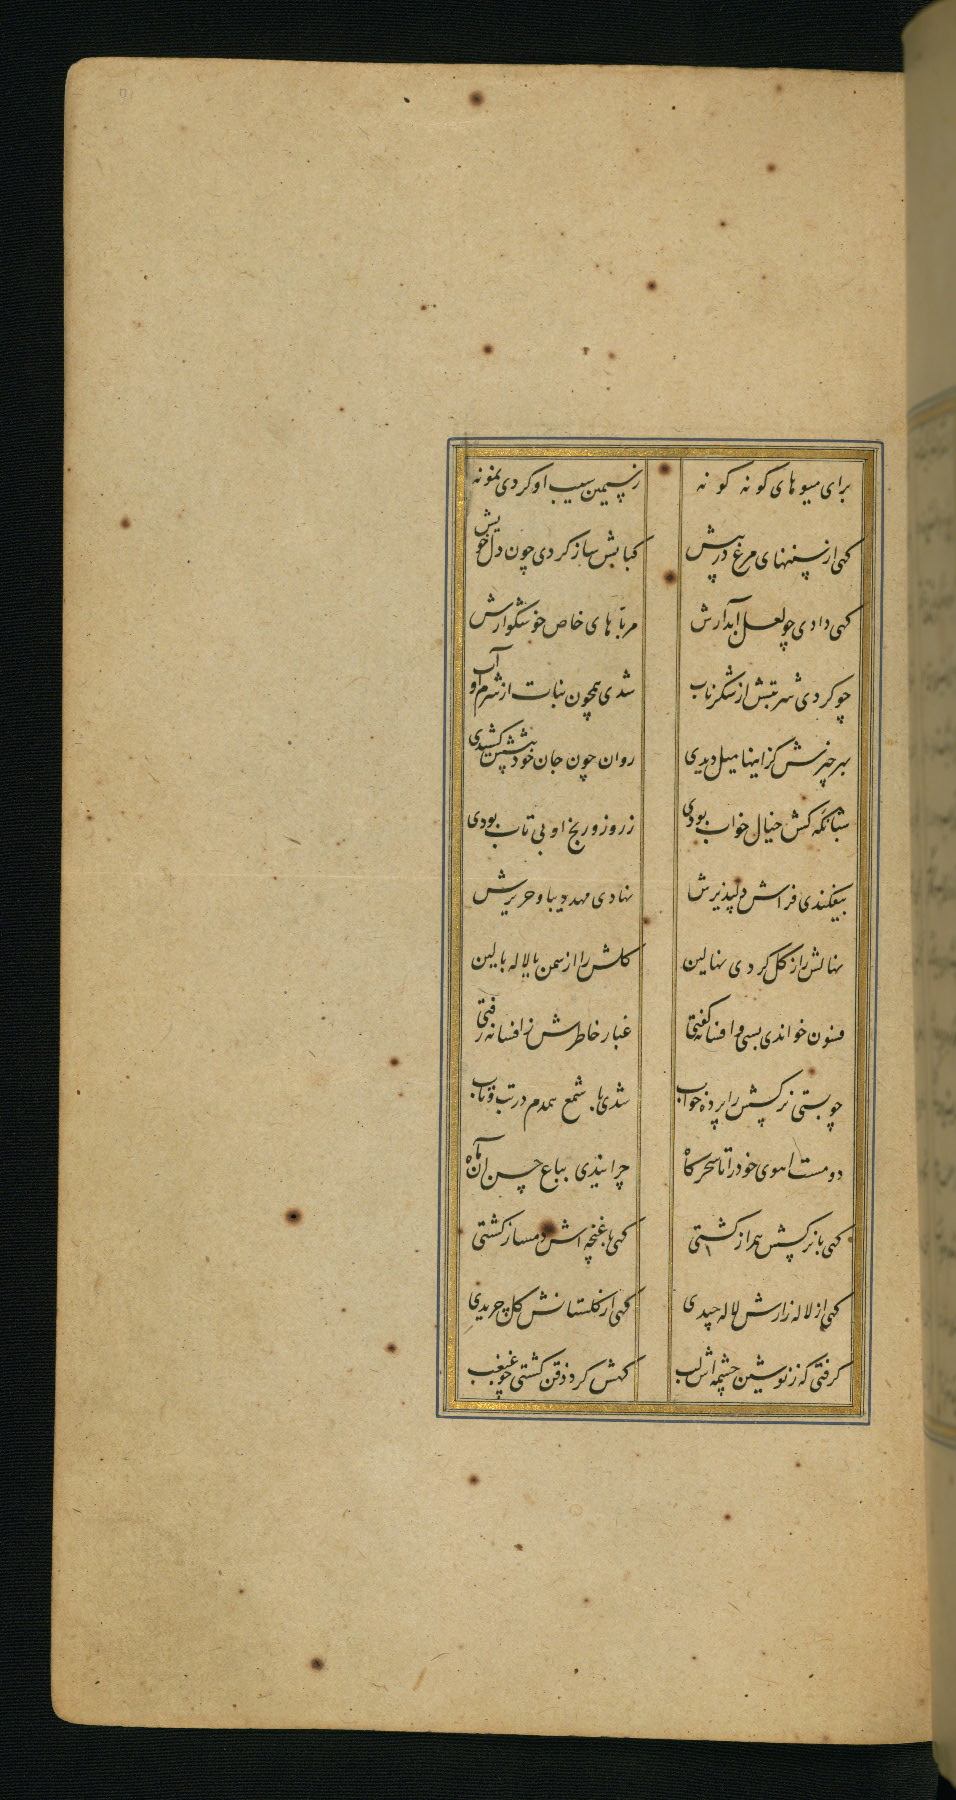 برای میوهای کونه کونه زسیمین سیب او کردی نمونه
کهی از سینهای مرغ در پیش کبابش ساز کردی چون دل خویش
کهی دادی چو لعل آبدارش مرباهای خاص خوشکوارش
چو کردی شربتش از شکر ناب شدی همچون نبات از شرم او آب
بهر چیزش کز اینها میل دیدی روان چون جان خود پیشش کشیدی
شبانکه کش خیال خواب بودی ز روز و رنج او بی تاب بودی
بیفکندی فراش دلپذیرش نهادی مهد دیبا و حریرش
نهالش را ز کل کردی نهالین کلش را از سمن یا لاله بالین
فسون خواندی بسی و افسانه کفتی غبار خاطرش ز افسانه رفتی
چو بستی نرکسش را پرده خواب شدی با شمع همدم در تب و تاب
دو مست آهوی خود را تا سحرکاه چرانیدی بباغ حسن آن ماه
کهی با نرکسش همراز کشتی کهی با غنچه اش دمساز کشتی
کهی از لاله زارش لاله چیدی کهی از کلستانش کل چریدی
کرفتی که ز نوشین چشمه اش لب کهش کرد ذقن کشتی چو غبغب